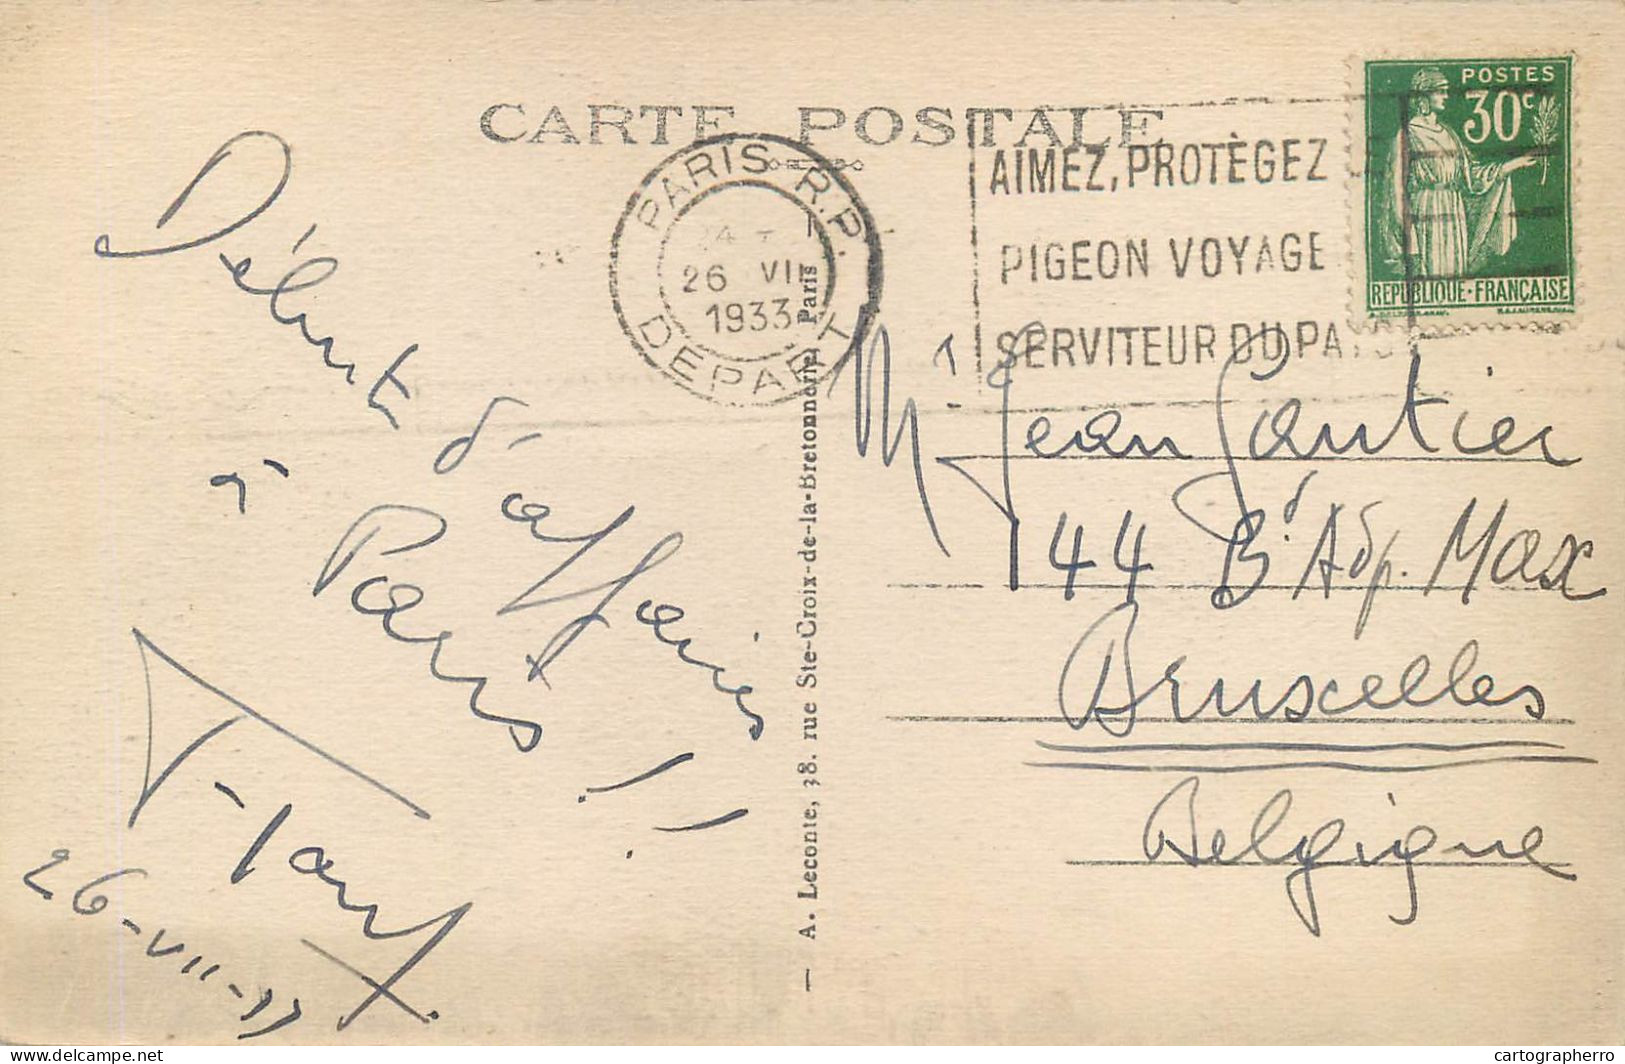 CARTE POSTALE
PARIS R.P.
26 VII
1933
DEPART
AIMEZ, PROTÈGEZ
PIGEON VOYAGE
SERVITEUR DU PA
POSTES
30c
REPUBLIQUE·FRANÇAISE
Début d'affaires
à Paris !!
26-VII-33
— A. Leconte, 38. rue Ste-Croix-de-la-Bretonnerie, Paris
Mr Jean Gautier
144 Bd. Adp. Max
Bruxelles
Belgique
delcampe.net
cartographerro